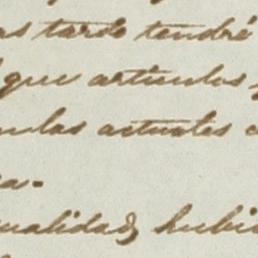 as tarde tendré
que articulos
actuales
ualidad, hubi